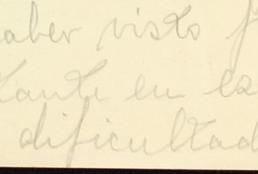 aber visto
tante en es
dificultad